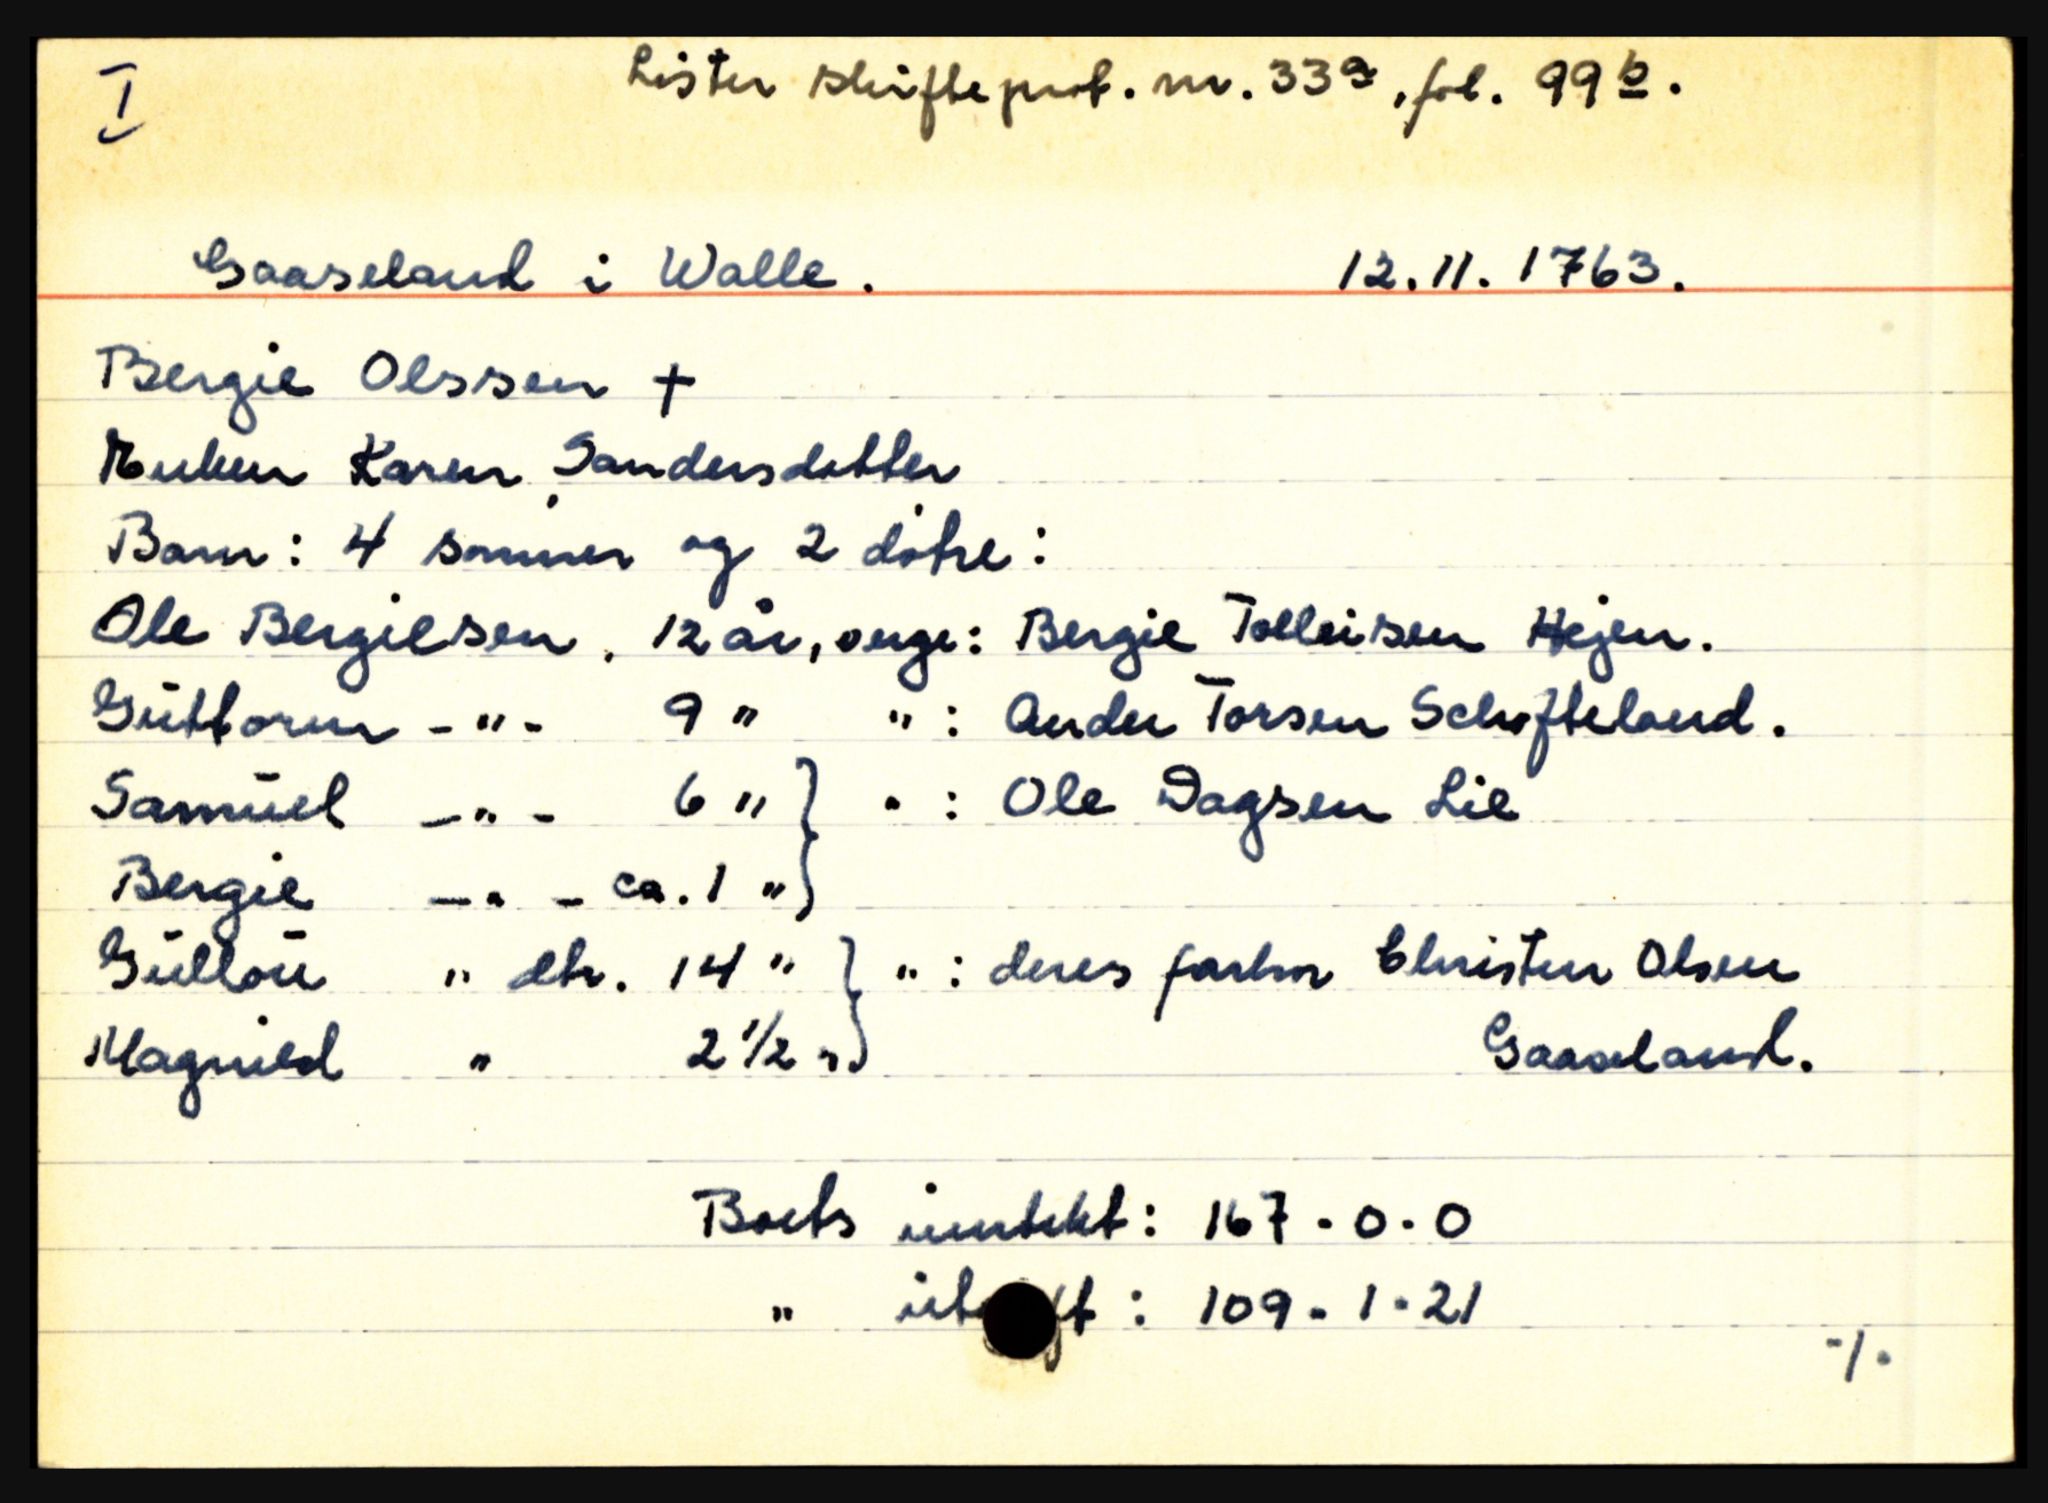 I
Lister skifteprot. nr. 33a, fol. 99b.
Gaaseland i Walle. 12.11.1763.
Bergie Olssen †
Enken Karen Sandersdotter
Barn: 4 sønner og 2 døtre:
Ole Bergiesen, 12 år, verge: Bergie Tolleisen Hejen.
Guttorm -"- 9 " " : Ander Torsen Schofteland.
Samuel -"- 6 " } " : Ole Dagsen Lie
Bergie -"- ca. 1 " }
Gullou " dtr. 14 " } " : deres farbror Christen Olsen
Magnild " 2 1/2 " } Gaaseland.
Boets inntekt: 167-0-0
" utgift: 109-1-21
-/.